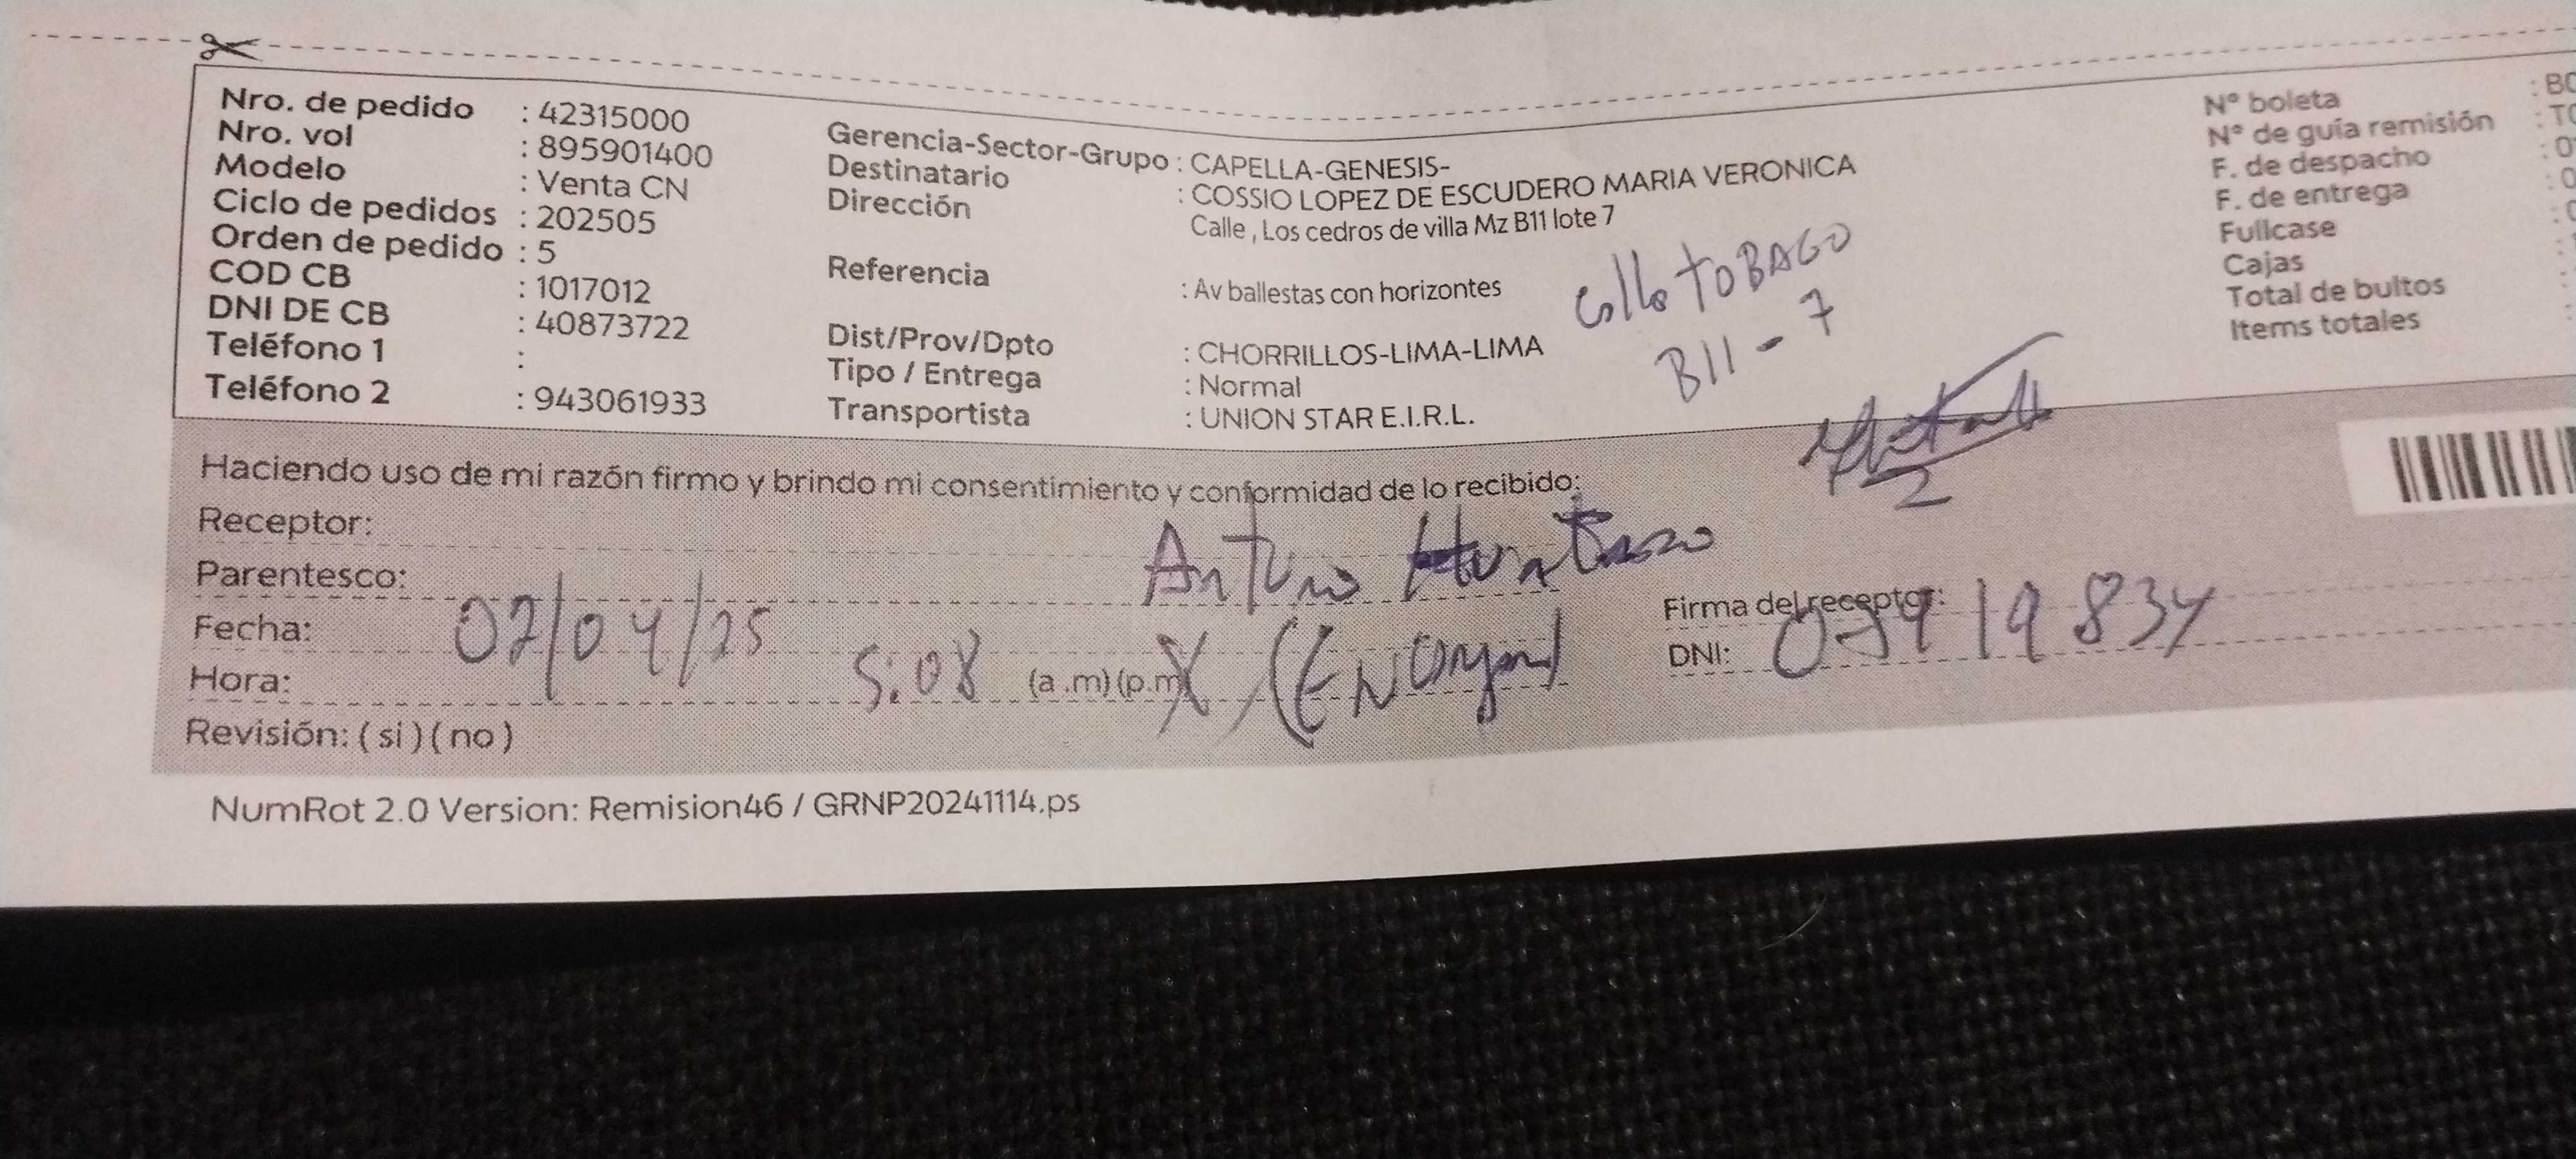 Nro. de pedido : 42315000
Nro. vol : 895901400
Modelo : Venta CN
Ciclo de pedidos : 202505
Orden de pedido : 5
COD CB : 1017012
DNI DE CB : 40873722
Teléfono 1 :
Teléfono 2 : 943061933
Gerencia-Sector-Grupo : CAPELLA-GENESIS-
Destinatario : COSSIO LOPEZ DE ESCUDERO MARIA VERONICA
Dirección Calle , Los cedros de villa Mz B11 lote 7
Referencia : Av ballestas con horizontes
Dist/Prov/Dpto : CHORRILLOS-LIMA-LIMA
Tipo / Entrega : Normal
Transportista : UNION STAR E.I.R.L.
TOBAGO
B11 - 7
N° boleta : B0
N° de guía remisión : T0
F. de despacho : 0
F. de entrega : 0
Fullcase
Cajas
Total de bultos
Items totales
Haciendo uso de mi razón firmo y brindo mi consentimiento y conformidad de lo recibido:
Receptor: Arturo
Parentesco:
Fecha: 02/04/25
Hora: 5:08 (a .m) (p.m
Firma del receptor:
DNI:
Revisión: ( si ) ( no )
NumRot 2.0 Version: Remision46 / GRNP20241114.ps